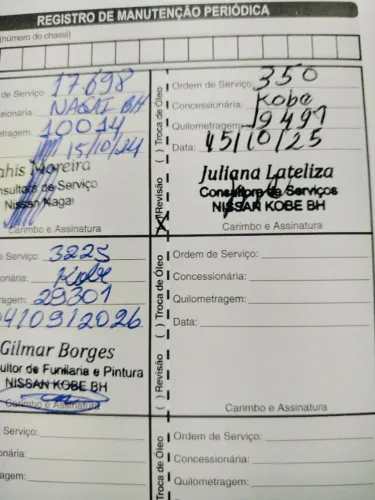 REGISTRO DE MANUTENÇÃO PERIÓDICA
(número do chassi)
de Serviço: 17698
sionária: NAGAI BH
etragem: 10014
15/10/24
ahis Moreira
nsultora de Serviço
Nissan Nagai
Carimbo e Assinatura
( ) Revisão ( ) Troca de Óleo
Ordem de Serviço: 350
Concessionária: Kobe
Quilometragem: 19497
Data: 15/10/25
Juliana Lateliza
Consultora de Serviços
NISSAN KOBE BH
Carimbo e Assinatura
e Serviço: 3225
onária: Kobe
ragem: 29301
04/09/2026
Gilmar Borges
ultor de Funilaria e Pintura
NISSAN KOBE BH
Carimbo e Assinatura
( ) Revisão ( ) Troca de Óleo
Ordem de Serviço:
Concessionária:
Quilometragem:
Data:
Carimbo e Assinatura
Serviço:
onária:
agem:
Troca de Óleo
Ordem de Serviço:
Concessionária:
Quilometragem: